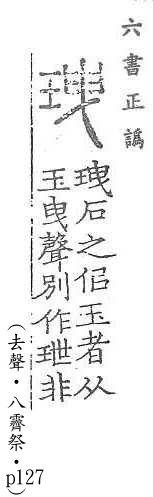 六書正譌
玴石之佀玉者从
玉曳聲別作非
（去聲・八霽祭・p127）